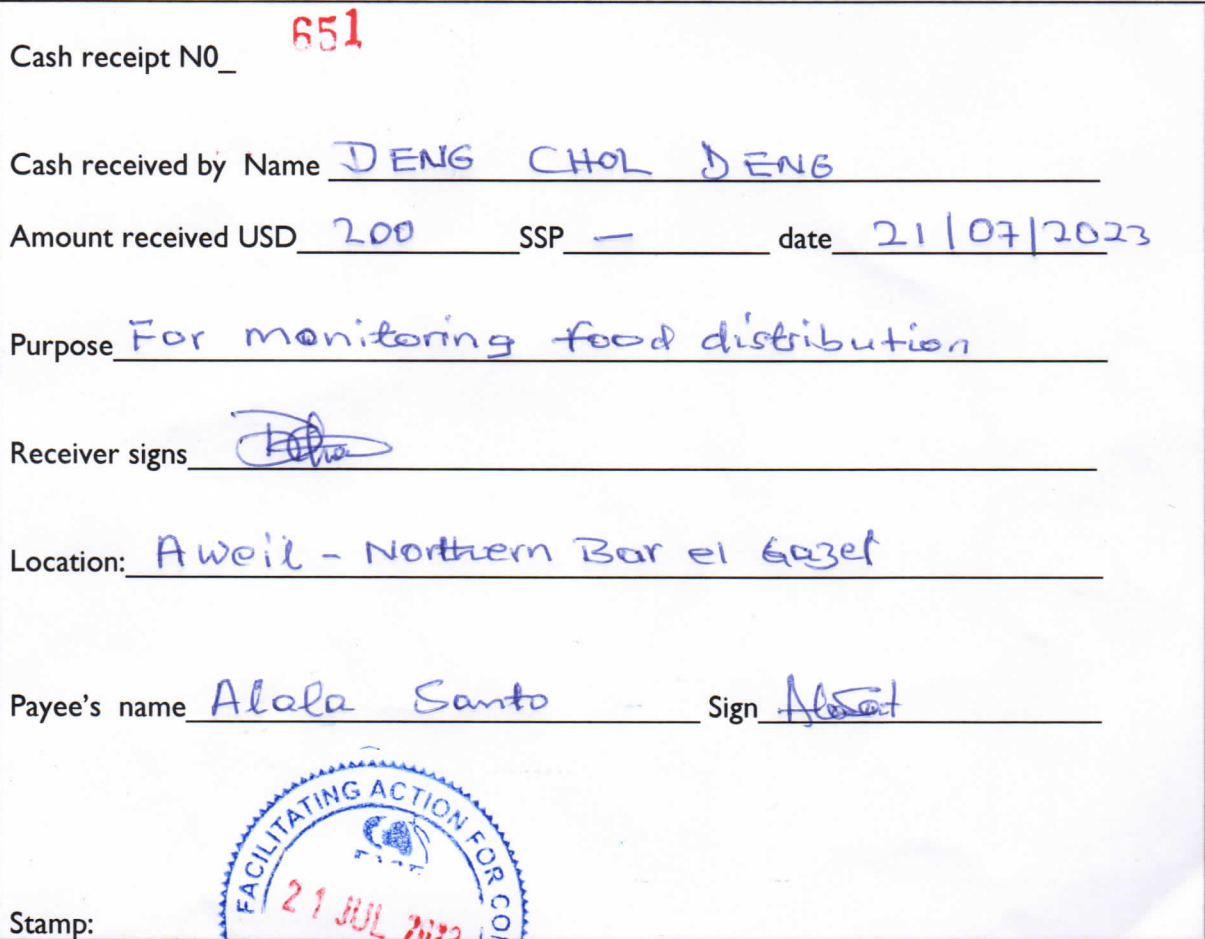 651
Cash receipt N0_
Cash received by Name DENG CHOL DENG
Amount received USD 200 SSP — date 21/07/2023
Purpose For monitoring food distribution
Receiver signs
Location: Aweil - Northern Bar el Gazel
Payee's name Alala Santo Sign
FACILITATING ACTION FOR
21 JUL
Stamp: